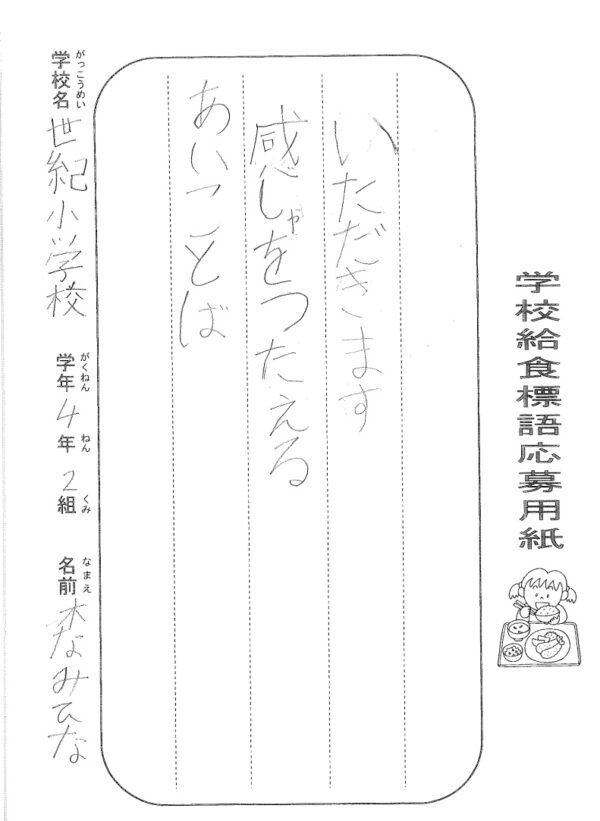 学校給食標語応募用紙
いただきます
感しゃをつたえる
あいことば
学校名 がっこうめい 世紀小学校 学年 がくねん 4年 ねん 2組 くみ 名前 なまえ 木なみひな